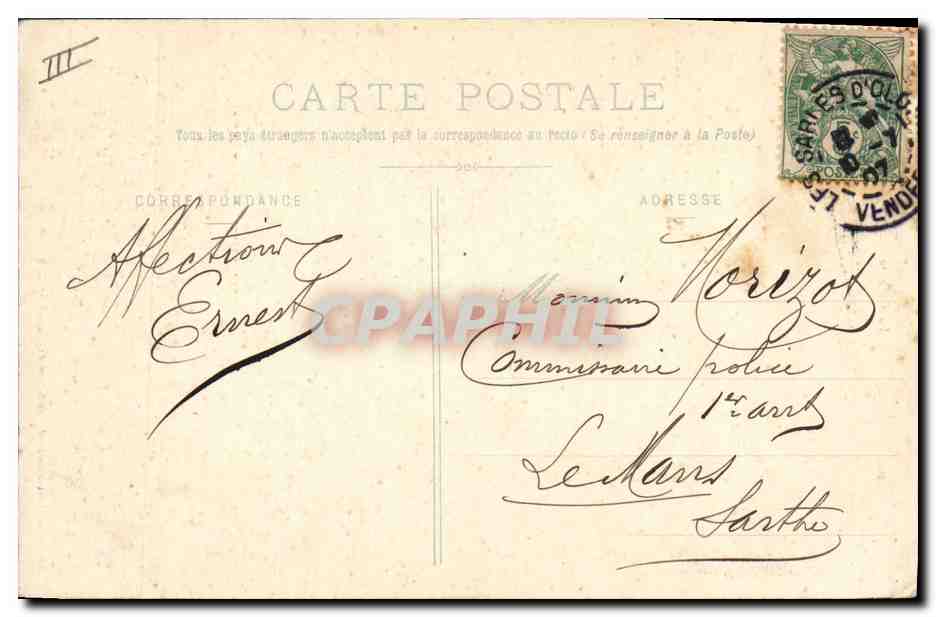 III
CARTE POSTALE
Tous les pays étrangers n'acceptent pas la correspondance au recto (Se renseigner à la Poste)
CORRESPONDANCE
ADRESSE
LES SABLES D'OLO
VENDÉE
5c
POSTE
Affection
Ernest
Monsieur Morizot
Commissaire police
1er arrt
Le Mans
Sarthe
CPAPHIL